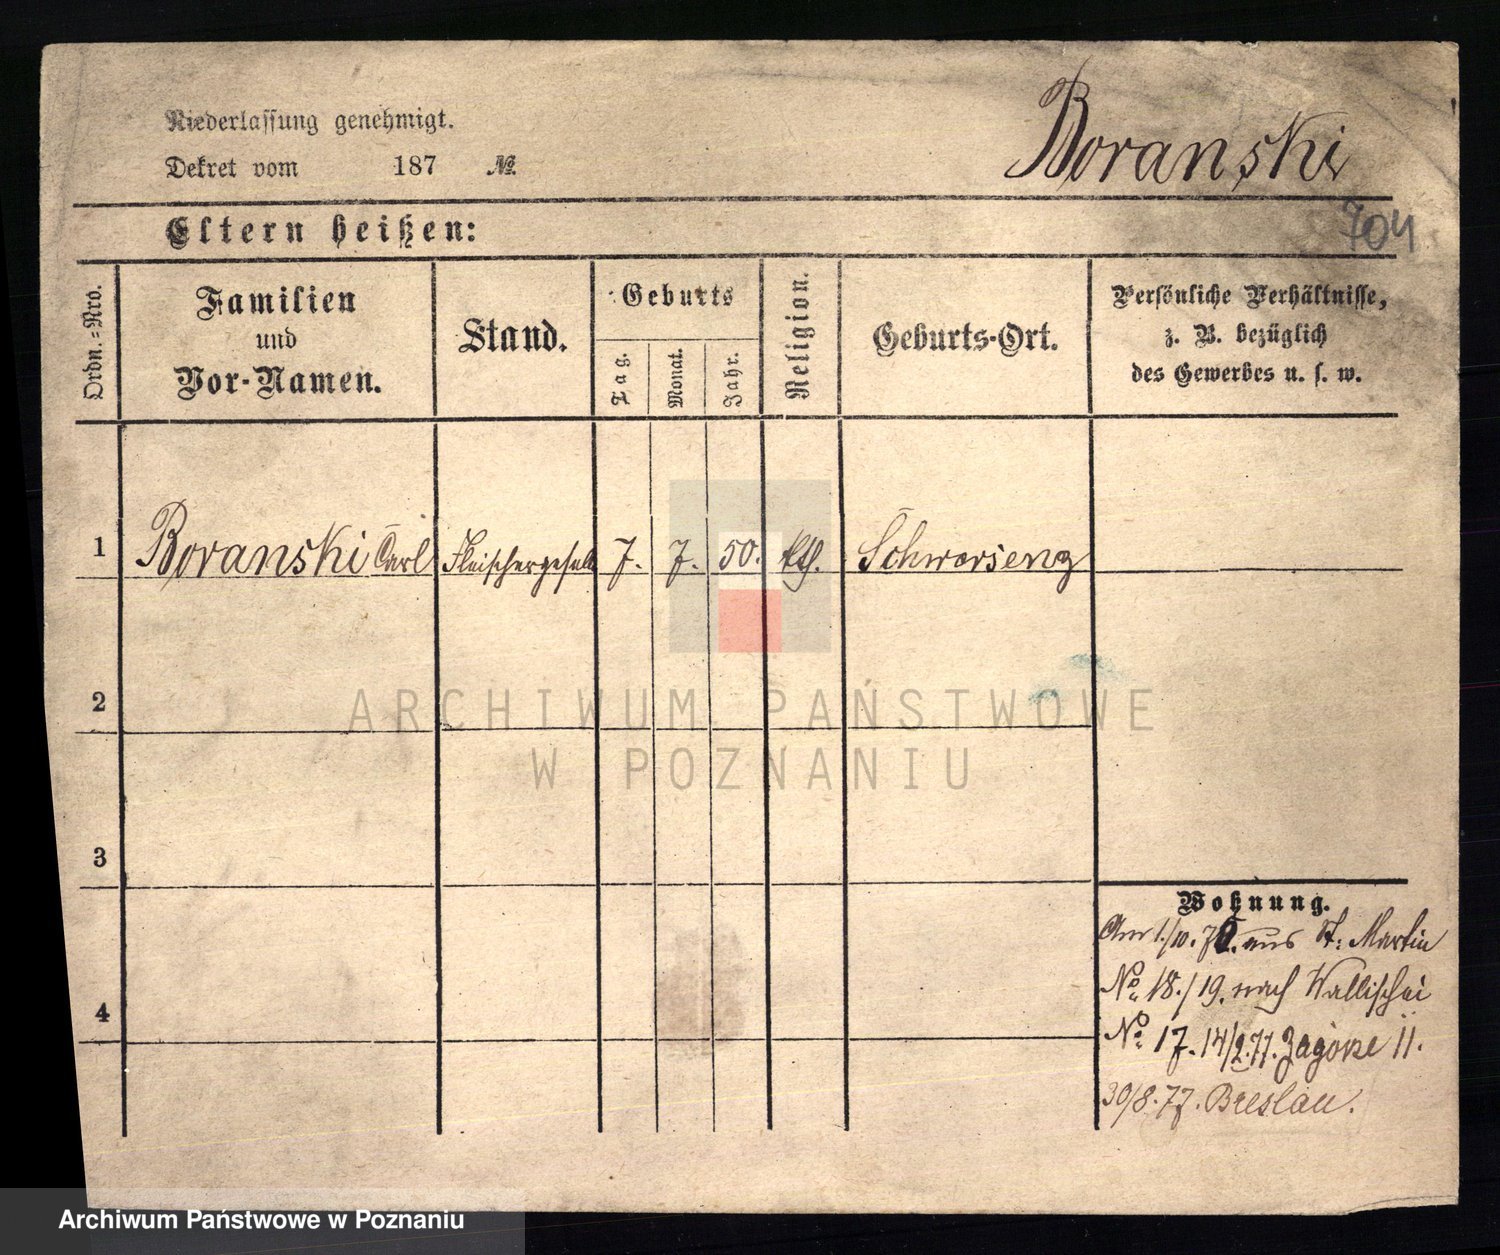 Niederlassung genehmigt.
Dekret vom 187 №
Boranski
704
Eltern heißen:
Ordn.-Nro.
Familien
und
Vor-Namen.
Stand.
Geburts
Tag.
Monat.
Jahr.
Religion.
Geburts-Ort.
Persönliche Verhältnisse,
z. B. bezüglich
des Gewerbes u. s. w.
1 Boranski Carl Fleischergesell 7. 7. 50. kth. Schwersenz
2
3
4
ARCHIWUM PAŃSTWOWE
W POZNANIU
Wohnung.
Am 1./10. 76. aus St: Martin
No. 18./19. nach Wallischei
No. 17. 14/2.77. Zagorze 11.
30/8.77. Breslau.
Archiwum Państwowe w Poznaniu